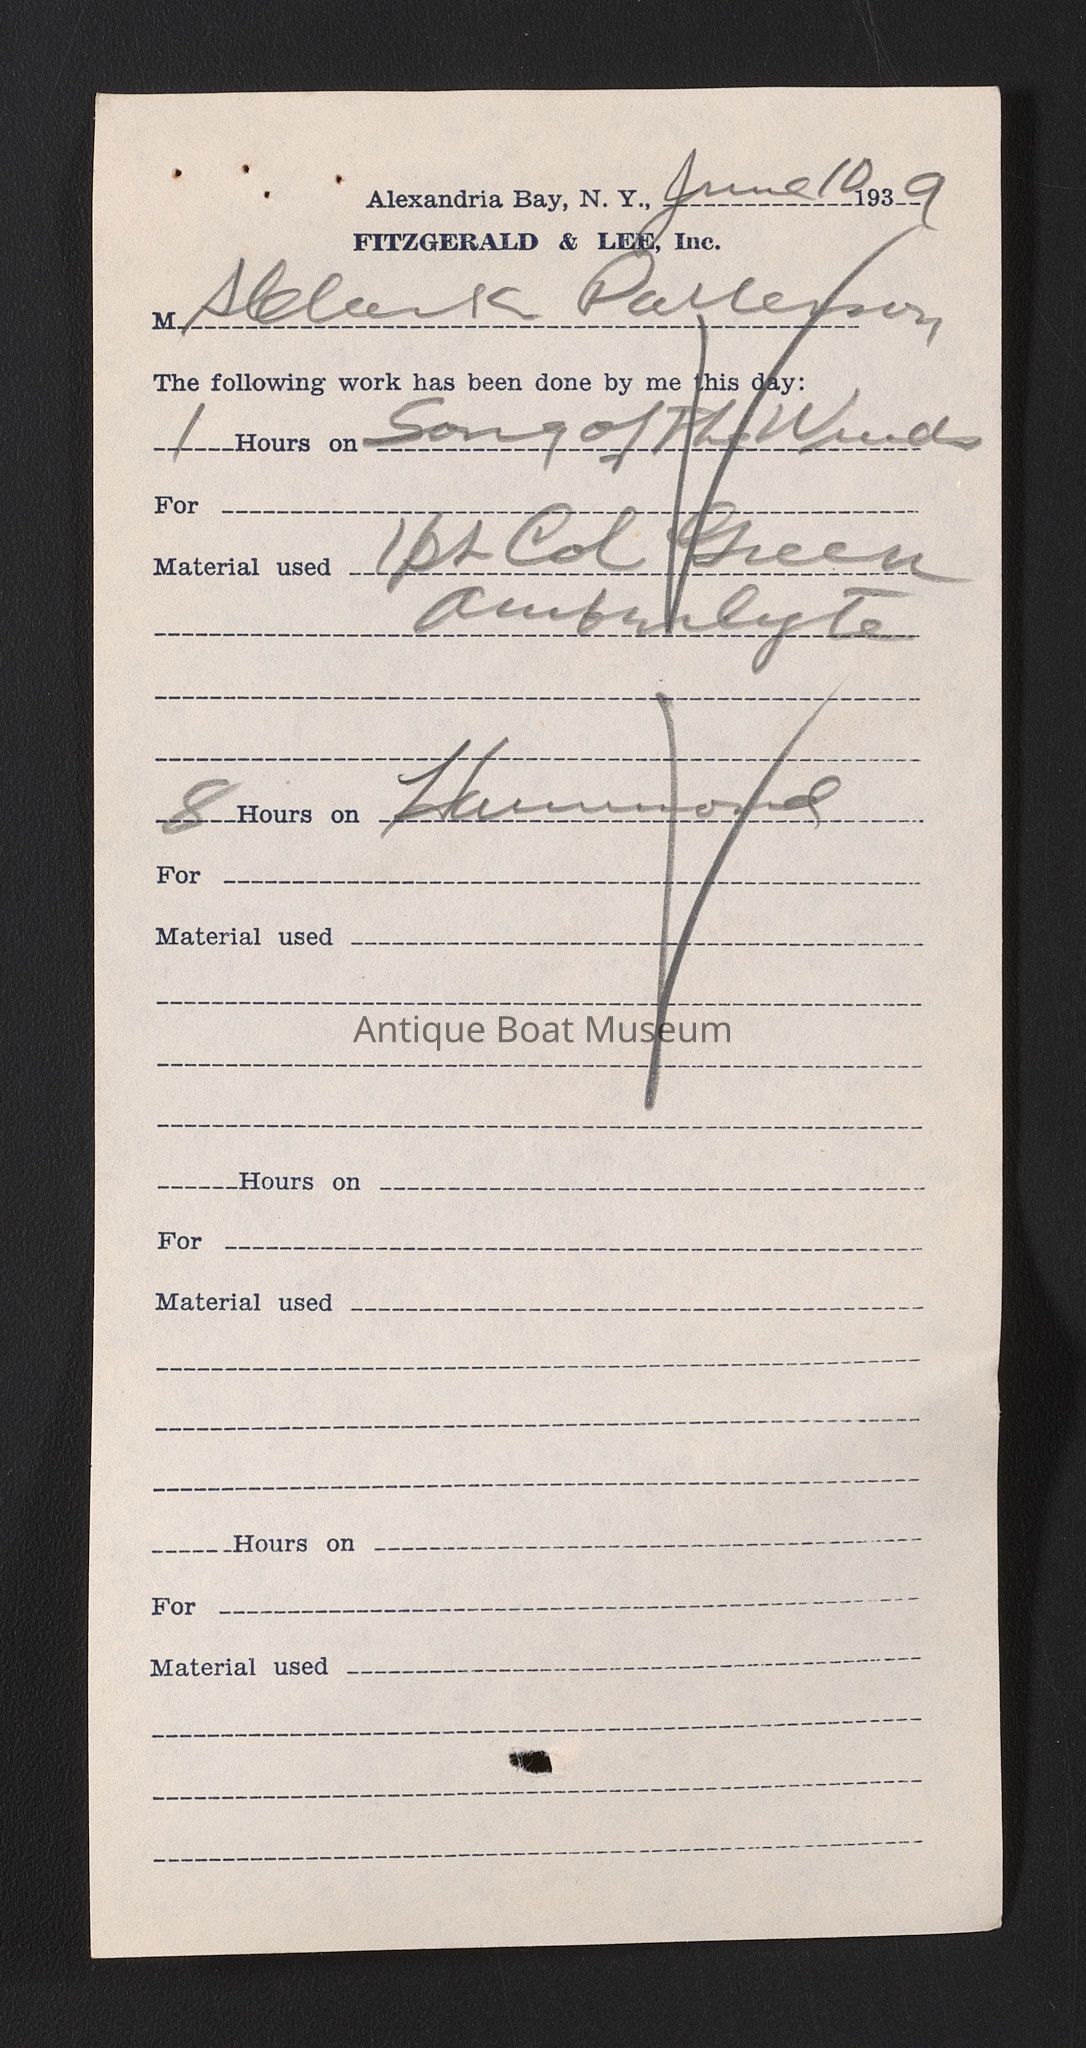 Alexandria Bay, N. Y., June 10 1939
FITZGERALD & LEE, Inc.
M. Patterson
The following work has been done by me this day:
1 Hours on Song of The Winds
For
Material used 1 pt Col Green
Amberlyte
8 Hours on Hammond
For
Material used
Antique Boat Museum
Hours on
For
Material used
Hours on
For
Material used